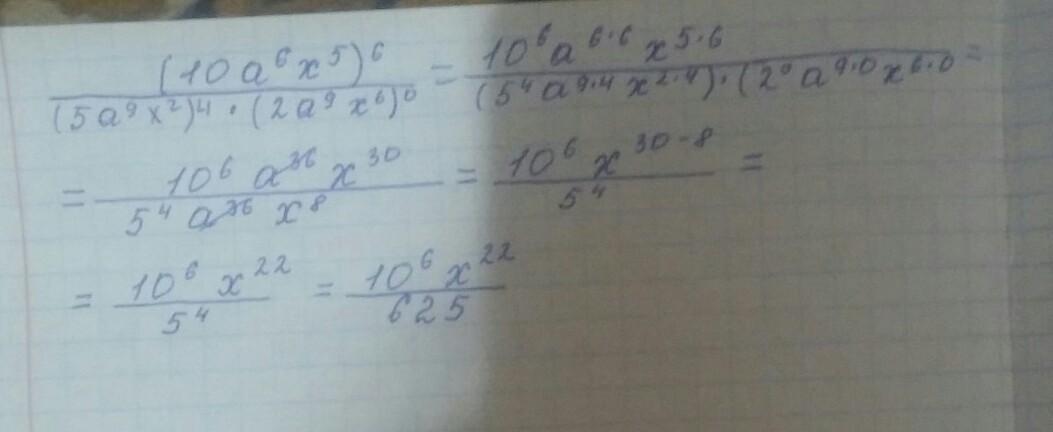 (10a⁶x⁵)⁶ / (5a⁹x²)⁴ · (2a⁹x⁶)⁰ = 10⁶a⁶·⁶x⁵·⁶ / (5⁴a⁹·⁴x²·⁴) · (2⁰a⁹·⁰x⁶·⁰ =
= 10⁶a³⁶x³⁰ / 5⁴a³⁶x⁸ = 10⁶x³⁰⁻⁸ / 5⁴ =
= 10⁶x²² / 5⁴ = 10⁶x²² / 625